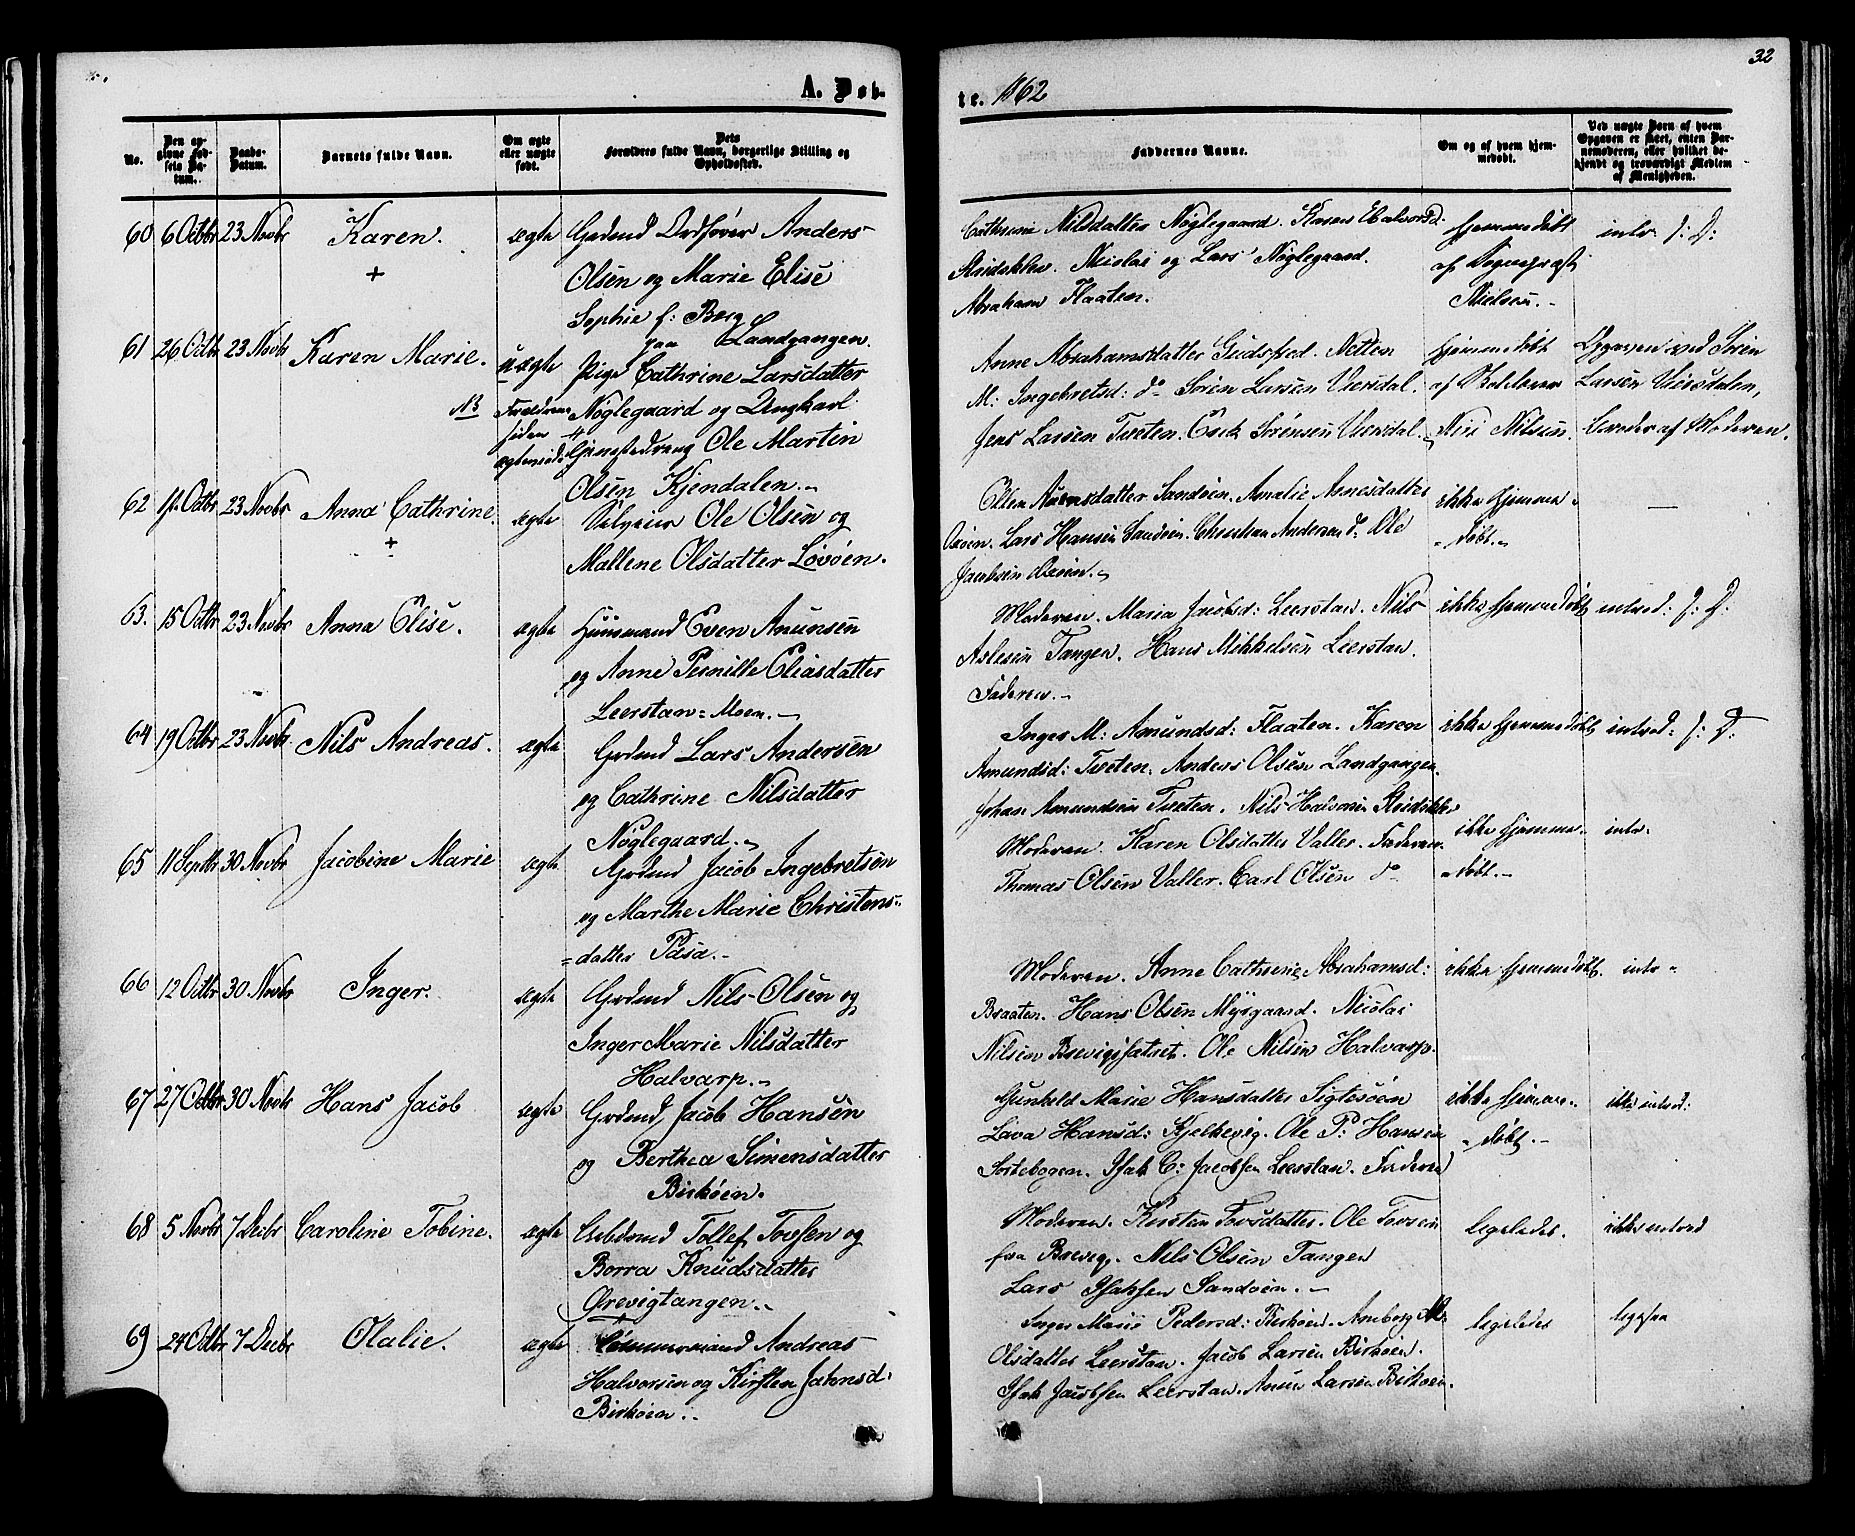 A. Døb-
te. 1862
32
No.
Den an-
givne Fød-
sels Da-
tum.
Daabs-
Datum.
Barnets fulde Navn.
Om ægte
eller uægte
født.
Dets
Forældres fulde Navn, borgerlige Stilling og
Opholdssted.
Faddernes Navne.
Om og af hvem hjem-
medøbt.
Ved uægte Børn af hvem
Opgaven er skeet, enten Bar-
nemoderen, eller hvilket be-
kjendt og troværdigt Medlem
af Menigheden.
60 6 Octbr 23 Novbr Karen. ægte Gadmd Ordfører Anders
+ Olsen og Marie Elise
Sophie f: Berg
paa Landgangen.
Cathrine Nilsdatter Nøglegaard. Karen Halvorsd.
Nicolai og Lars Nøglegaard.
Abraham Flaaten.
hjemmedøbt
af Sognepræst
Nielsen.-
intr. f: D:
61 26 Octbr 23 Novbr Karen Marie. uægte Pige Cathrine Larsdatter
NB Forældrene Nøglegaard og Ungkarl
siden Ole Martin
Olsen Kjendalen.
Anne Abrahamsdatter Gudsfred. Netten
M: Ingebretsd: do Søren Larsen Viersdal.
Jens Larsen Tveten. Erik Sørensen Viersdal.
hjemmedøbt
af
Nils Nilsen.
Opgaven ved Søren
Larsen Viersdalen,
Broder af Moderen.
62 17 Octbr 23 Novbr Anna Cathrine. ægte Selveier Ole Olsen og
+ Mallene Olsdatter Løvøen.
Ellen Sandøen. Amalie Asnesdatter
Lars Hansen Sandøen. Christian Andersen do Ole
Jacobsen
ikke hjemme-
-døbt.-
63. 15 Octbr 23 Novbr Anna Elise. ægte Huusmand Even Anunsen
og Anne Pernille Eliasdatter
Leerstan-Moen.-
Moderen. Maria Jacobsd: Leerstan. Nils
Aslesen Tangen. Hans Mikkelsen Leerstan.
Faderen.-
ikke hjemmedøbt introd: f: D:
64 19 Octbr 23 Novbr. Nils Andreas. ægte Grdmd Lars Andersen
og Cathrine Nilsdatter
Nøglegaard.
Inger M: Amundsd: Flaaten. Karen
Amundsd: Tveten. Anders Olsen Landgangen.
Johan Amundsen Tveten. Nils Halvorsen
ikke hjemmedøbt introd: f: D:
65 11 Septbr 30 Novbr Jacobine Marie ægte Grdmd Jacob Ingebretsen
og Marthe Marie Christens-
-datter Pasa.-
Moderen. Karen Olsdatter Valler. Faderen.
Thomas Olsen Valler. Carl Olsen do
ikke hjemme-
-døbt.-
intr.
66 12 Octbr 30 Novbr Inger. ægte Grdmd Nils Olsen og
Inger Marie Nilsdatter
Halvarp.
Moderen. Anne Cathrine Abrahamsd:
Braaten. Hans Olsen Myrgaard. Nicolai
Nilsen Brevigsfatset. Ole Nilsen Halvarp.
ikke hjemmedøbt. intr
67 27 Octbr 30 Novbr Hans Jacob ægte Grdmd Jacob Hansen
og Berthea Simensdatter
Birkøen.
Gunhild Marie Hansdatter Sigtesøen
Lava Hansd: Kjelkevig. Ole P: Hansen
Sortebogen. Isak C: Jacobsen Leerstan. Faderen
ikke hjemme-
-døbt.-
ikke introd:
68 5 Novbr 7 Decbr Caroline Tobine. ægte Arbdmd Tollef Tovsen og
Borra Knudsdatter
Ørevigtangen.
Moderen. Kirsten Tovsdatter. Ole Tovsen
fra Brevig. Nils Olsen Tangen
Lars Isaksen Sandøen.-
ligeledes.
ikke introd
69 24 Octbr 7 Decbr Olalie. ægte Tømmermand Andreas
Halvorsen og Kirsten Johnsd.
Birkøen.
Inger Marie Pedersd: Birkøen. Anborg M:
Olsdatter Leerstan. Jacob Larsen Birkøen.
Isak Jacobsen Leerstan. Anun Larsen Birkøen.
ligeledes
ligesaa